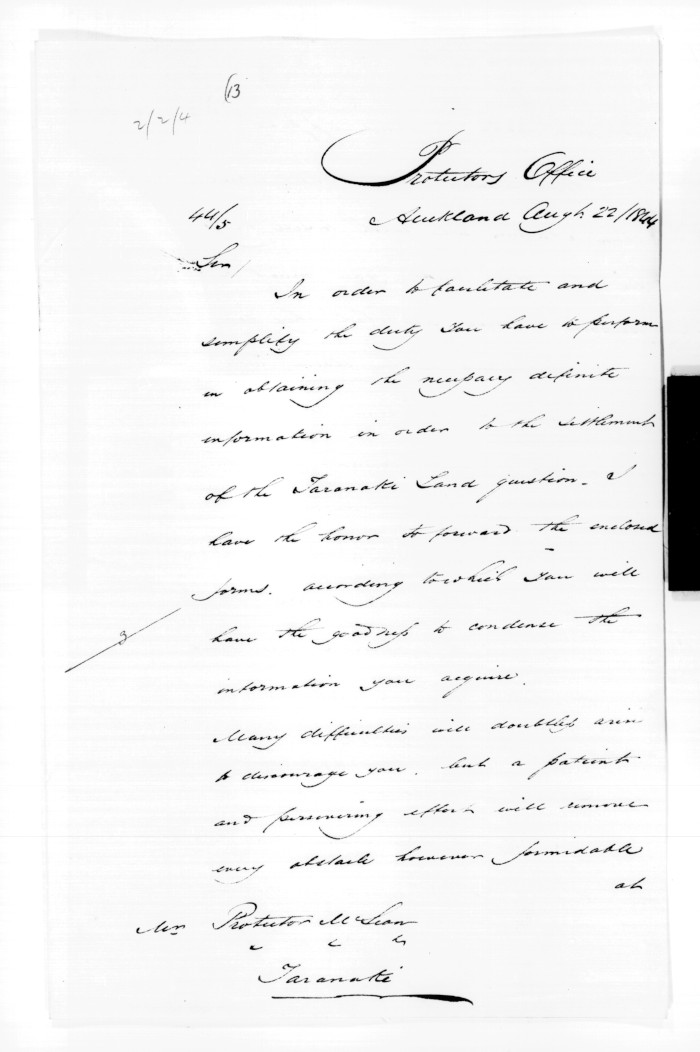 (13
2/2/4
Protectors Office
44/5
Auckland Augt 22/1844
Sir/
In order to facilitate and
simplify the duty you have to perform
in obtaining the necessary definite
information in order to the settlement
of the Taranaki Land question. I
have the honor to forward the enclosed
forms. according to which you will
have the goodness to condense the
information you acquire.
Many difficulties will doubtless arise
to discourage you. but a patient
and persevering effort will remove
every obstacle however formidable
at
Mr Protector McLean
Taranaki